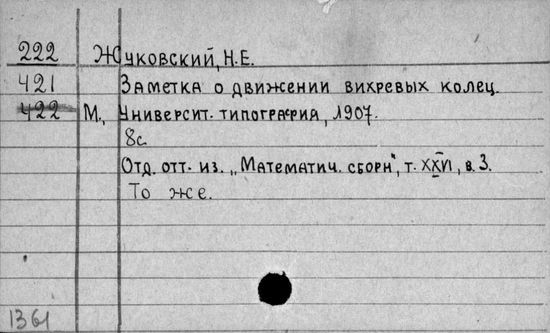 222 Жуковский, Н.Е.
421 Заметка о движении вихревых колец.
422 М., Университ. типография, 1907.
8с.
Отд. отт. из. „Математич. сборн", т. XXVI, в. 3.
То же.
1361